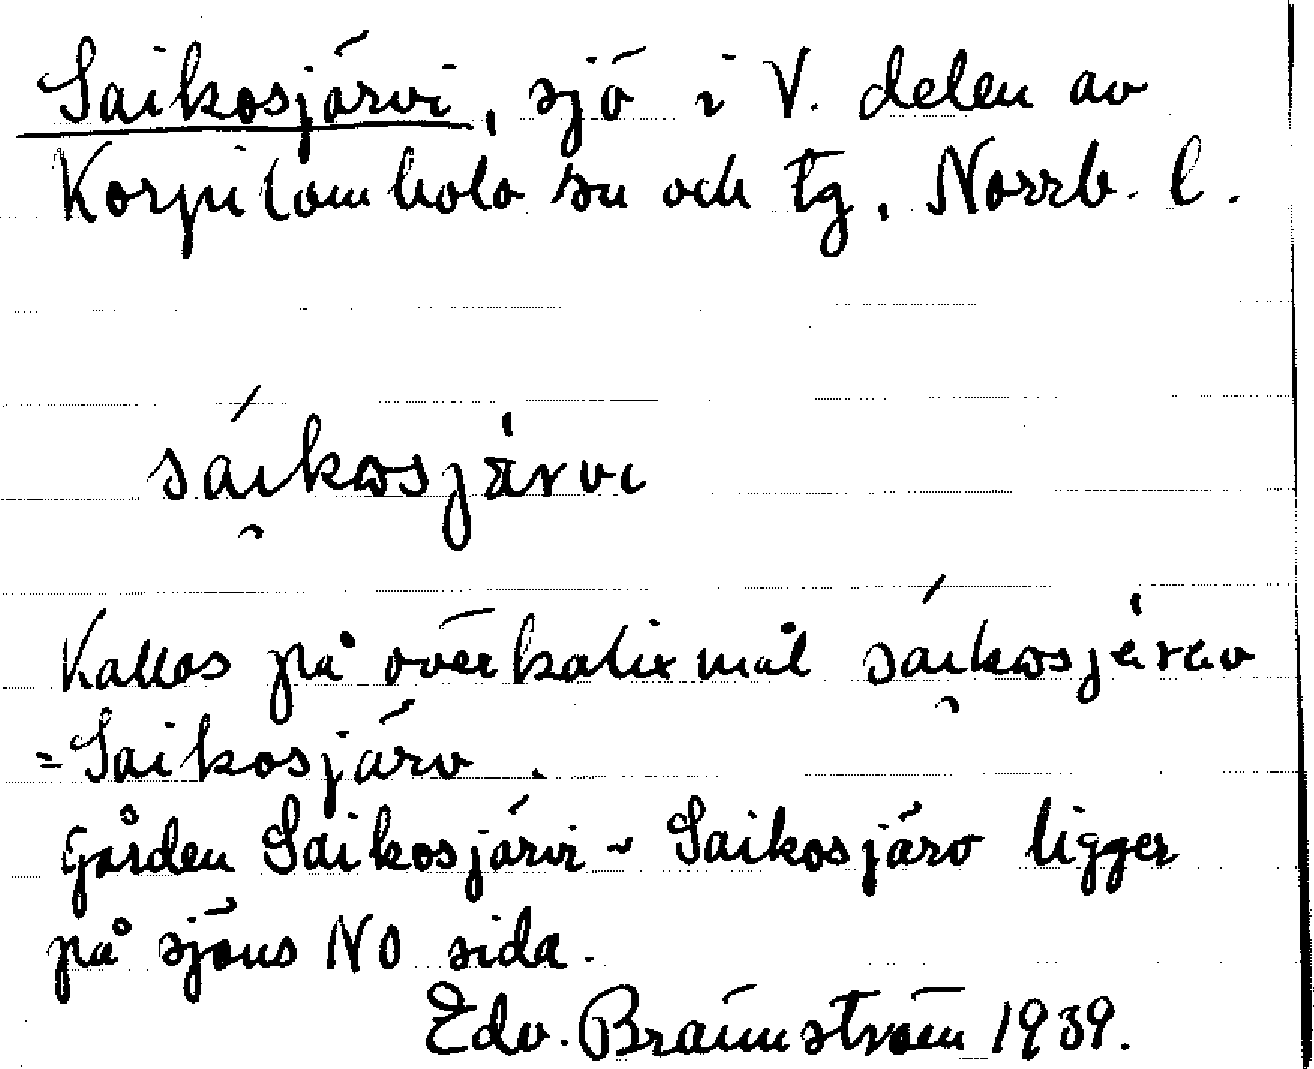 Saikosjärvi, sjö i V. delen av
Korpilombolo sn och tg, Norrb. l.
sáikosjärvi
Kallas på överkalixmål sáikosjärav
= Saikosjärv.
Gården Saikosjärvi ~ Saikosjärv ligger
på sjöns NO sida.
Edv. Brännström 1939.